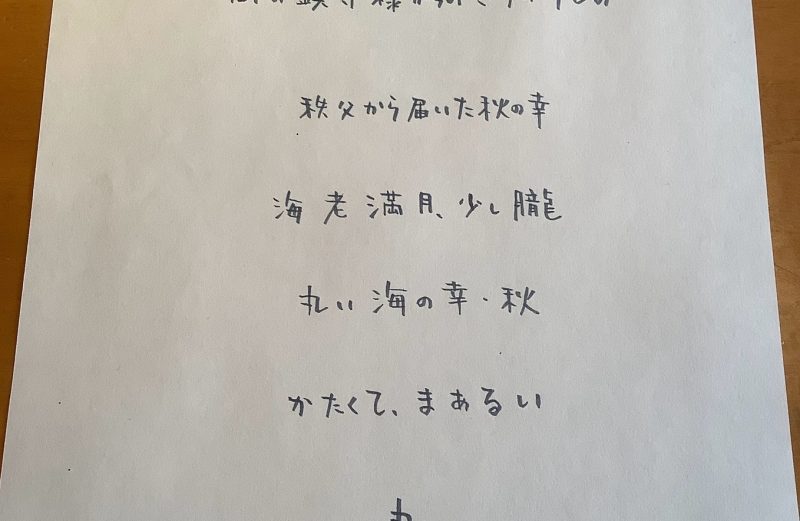 秩父から届いた秋の幸
海老満月、少し朧
丸い海の幸・秋
かたくて、まあるい